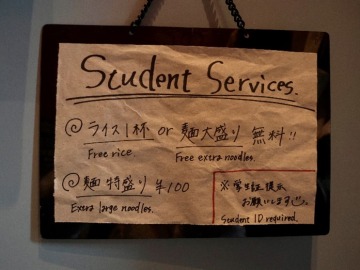 Student Services.
◎ライス1杯 or 麺大盛り 無料!!
Free rice. Free extra noodles.
◎麺特盛り ¥100
Extra large noodles.
※学生証提示
お願いします
Student ID required.